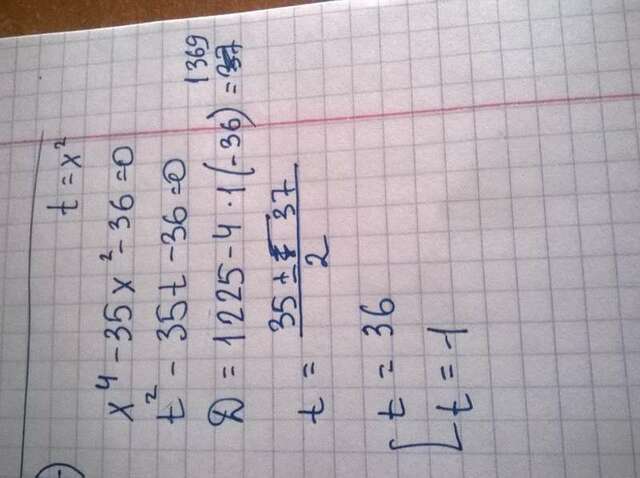 t = x²
x⁴ - 35x² - 36 = 0
t² - 35t - 36 = 0
D = 1225 - 4 · 1 (-36) = 1369
t = (35 ± 37) / 2
[ t = 36
t = 1